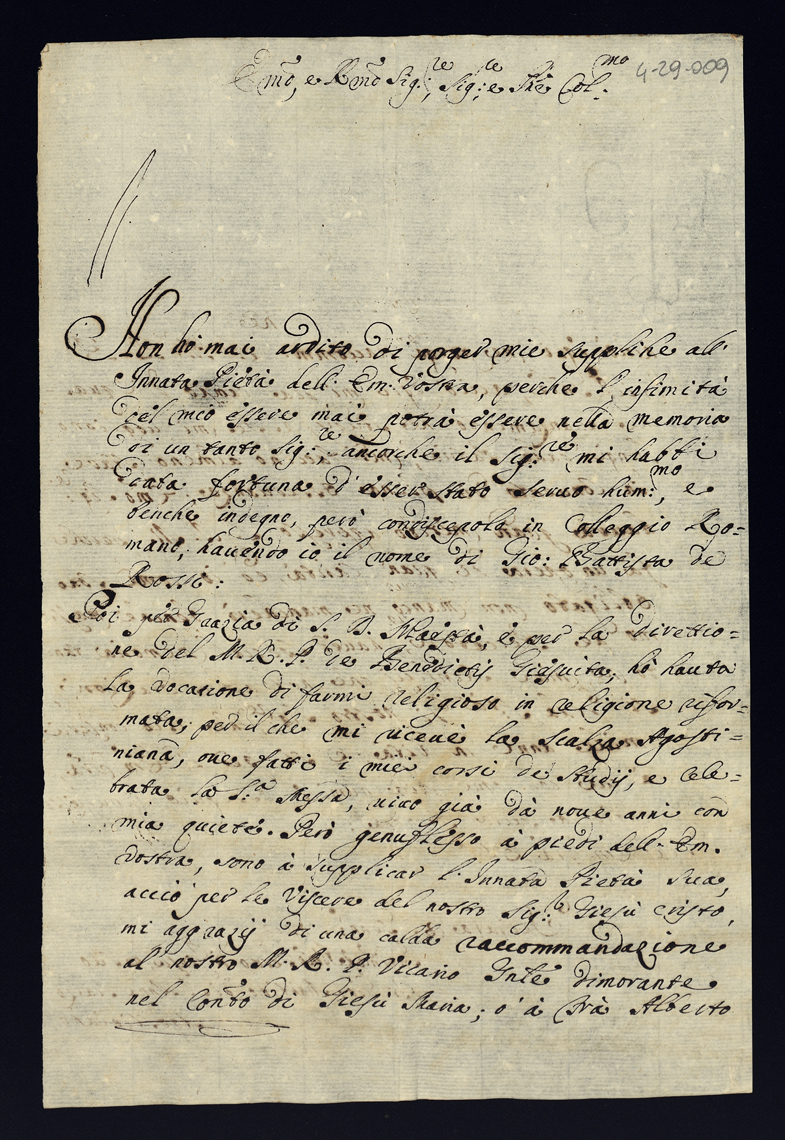 Em̃o, e Rm̃o Sig.re, Sig.re e Pñe Col.mo
4-29-009
Non hò mai ardito di porger mie suppliche all'
Innata Pietà dell' Em. Vostra, perche l' infimità
del mio essere mai potrà essere nella memoria
di un tanto Sig.re ancorche il Sig.re mi habbi
data fortuna d' esser stato seruo hum.mo, e
benche indegno, però condiscepolo in Colleggio Ro=
mano, hauendo io il nome di Gio: Battista de
Rossi:
Poi per Grazia di S. D. Maestà, e per la direttio=
ne del M. R. P. de Benedictis Giesuita, hò hauta
la vocasione di farmi religioso in religione rifor=
mata, per il che mi riceuè la scalza Agosti=
niana, oue fatti i miei corsi de studij, e cele=
brata la S.a Messa, uiuo già dà noue anni con
mia quiete. Però genuflesso à piedi dell' Em.
Vostra, sono à supplicar l' Innata Pietà sua,
acciò per le viscere del nostro Sig.re Giesù Cristo,
mi aggrazij di una calda raccommandazione
al nostro M. R. P. Vicario Gñle dimorante
nel Conũto di Giesù Maria; o' à Frà Alberto